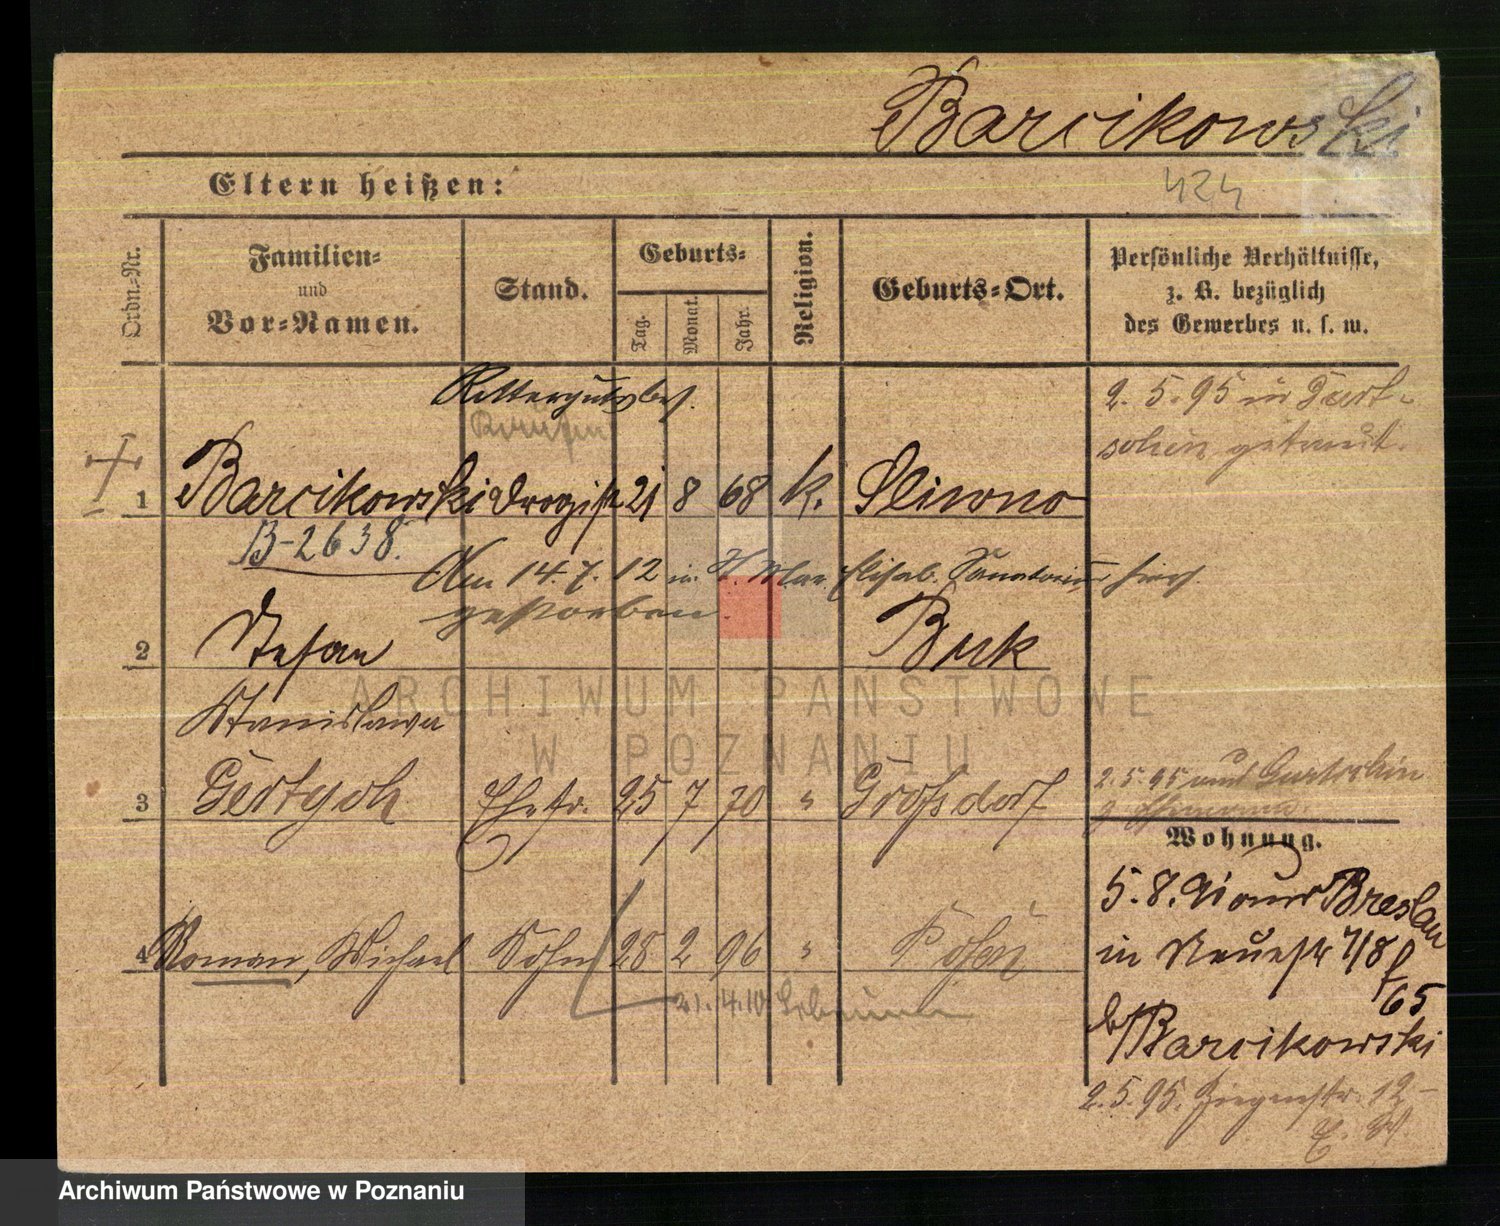 Barcikowski
Eltern heißen:
424
Ordn.-Nr.
Familien-
und
Vor-Namen.
Stand.
Geburts-
Tag.
Monat.
Jahr.
Religion.
Geburts-Ort.
Persönliche Verhältnisse,
z. B. bezüglich
des Gewerbes u. s. w.
Rittergutsbes.
2. 5. 95 in Gurt-
schin getraut.
1 Barcikowski Drogist 21 8 68 k. Sliwno
B-2638.
Am 14. 7. 12 in Elisab. Sanatorium hier
gestorben.
2 Stefan Buk
Stanislawa
3 Gertych Ehefr. 25 7 70 " Großdorf
2. 5. 95 aus Gurtschin
Wohnung.
4 Roman, Michael Sohn 28 2 96 " Posen
21. 4. 10
5. 8. 91 aus Breslau
in Neuestr 7/8
65
b/Barcikowski
2. 5. 95. Ziegenstr. 12
ARCHIWUM PAŃSTWOWE
W POZNANIU
Archiwum Państwowe w Poznaniu